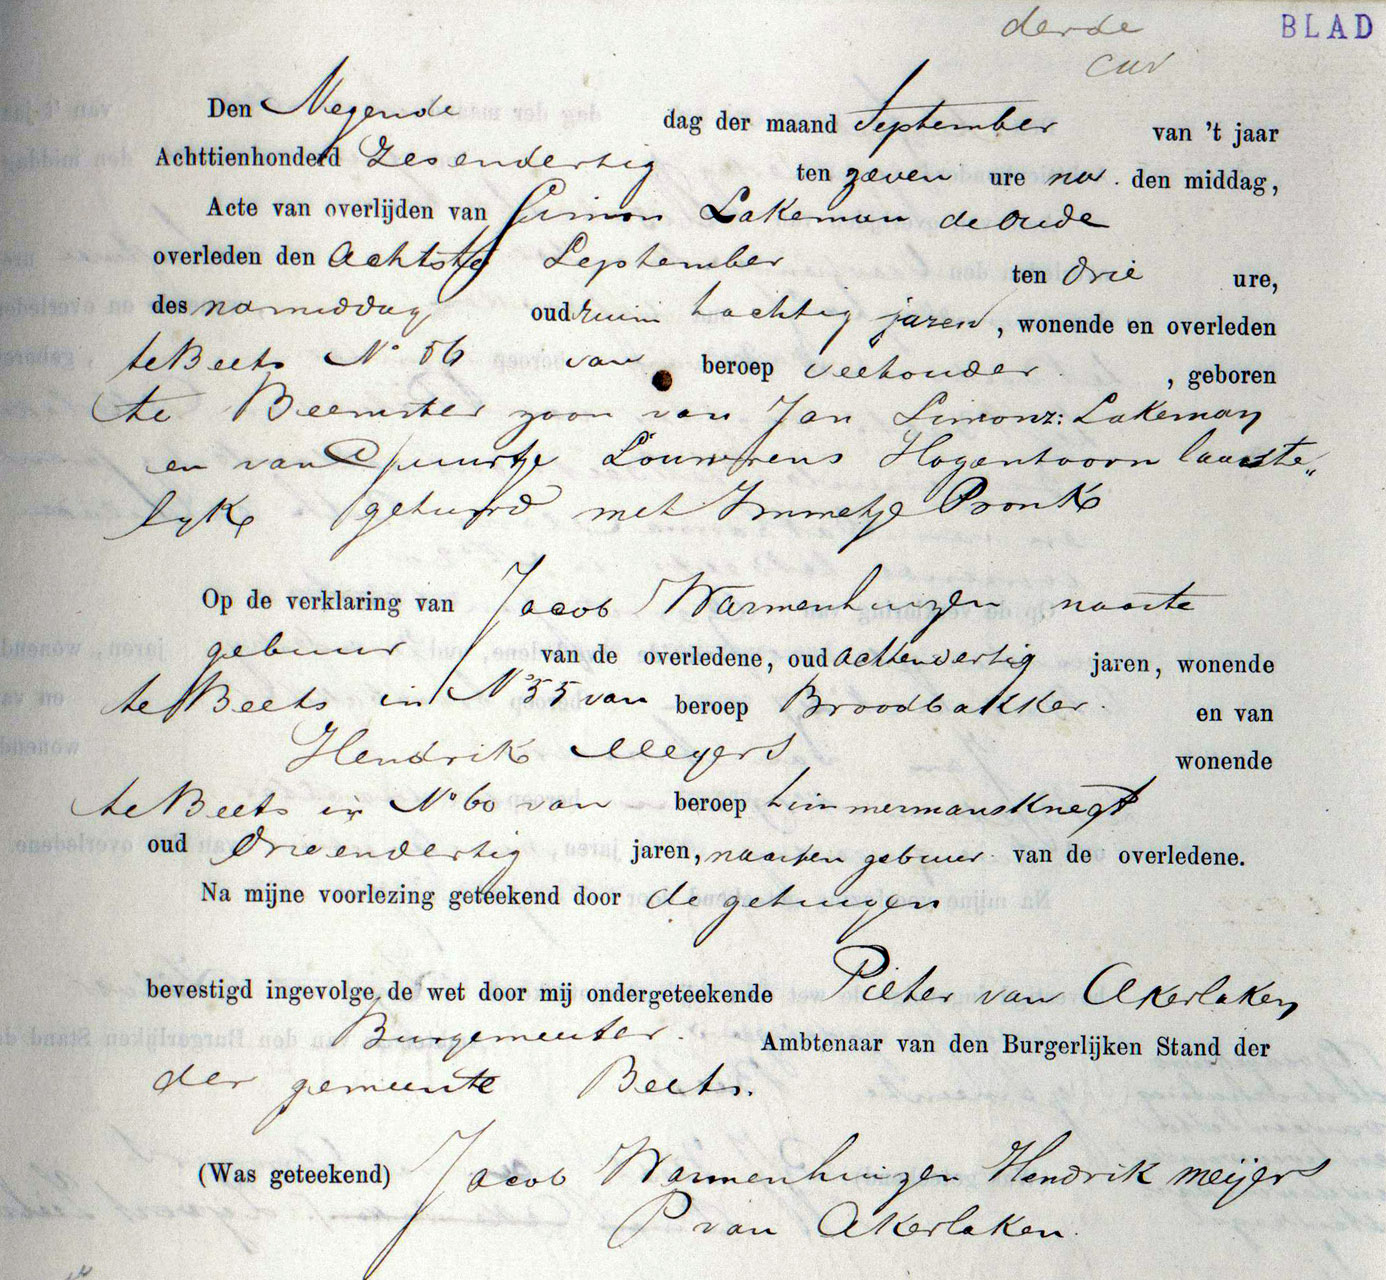 derde
BLAD
Den Negende dag der maand September van 't jaar
Achttienhonderd Zesendertig ten zeven ure na den middag,
Acte van overlijden van Simon Lakeman de oude
overleden den Achtste September ten drie ure,
des namiddag oud ruim tachtig jaren, wonende en overleden
te Beets N° 56 van beroep veehouder, geboren
te Beemster zoon van Jan Simonz: Lakeman
en van Louwrens Hogentoorn laaste„
lyk getuwd met Immetje Pronk
Op de verklaring van Jacob Warmenhuizen naaste
gebuur van de overledene, oud achtendertig jaren, wonende
te Beets in N° 55 van beroep Broodbakker en van
Hendrik Meyers wonende
te Beets in N° 60 van beroep timmermansknegt
oud drieendertig jaren, naasten gebuur van de overledene.
Na mijne voorlezing geteekend door de getuigen
bevestigd ingevolge de wet door mij ondergeteekende Pieter van Akerlaken
Burgemeester Ambtenaar van den Burgerlijken Stand der
der gemeente Beets.
(Was geteekend) Jacob Warmenhuizen Hendrik meijers
P van Akerlaken.